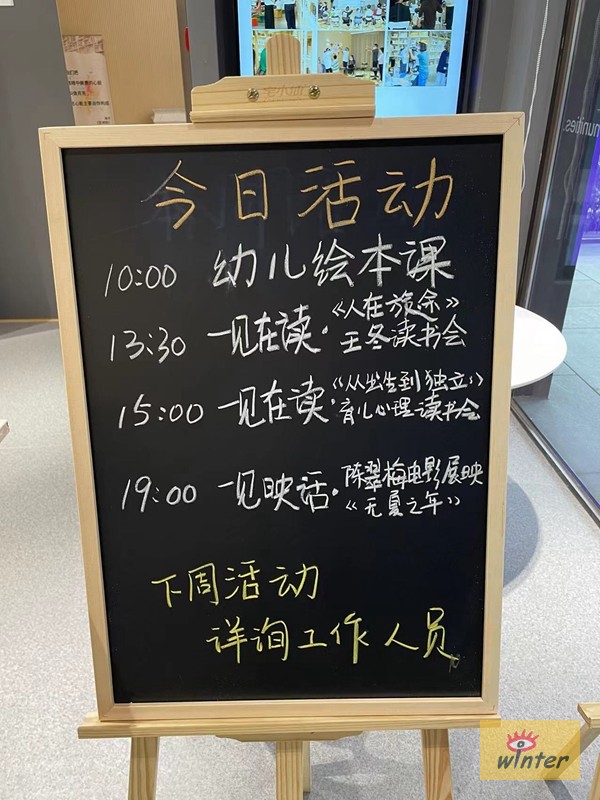 今日活动
10:00 幼儿绘本课
13:30 一见在读·《人在旅余》
王冬读书会
15:00 一见在读·《从出生到独立》
育儿心理读书会
19:00 一见映话·陈翠梅电影展映
《无夏之年》
下周活动
详询工作人员
winter